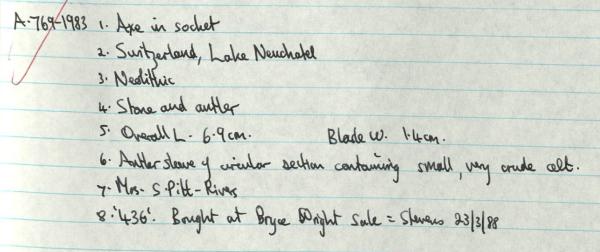 A.769-1983 1. Axe in socket
2. Switzerland, Lake Neuchatel
3. Neolithic
4. Stone and antler
5. Overall L. 6.9cm. Blade W. 1.4cm.
6. Antler sleeve of circular section containing small, very crude celt.
7. Mrs. S. Pitt-Rivers
8. '436'. Bought at Bryce Wright Sale = Stevens 23/3/88